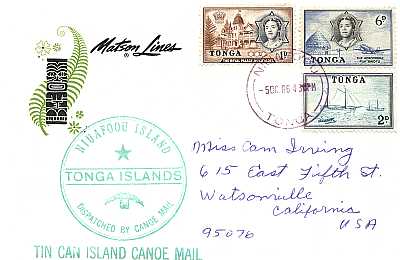 Matson Lines
TONGA 1D
THE ROYAL PALACE NUKUALOFA
6D
TONGA
TONGA
2D
-5 DC. 06 4 30PM
TONGA
NIUAFOOU ISLAND
TONGA ISLANDS
DISPATCHED BY CANOE MAIL
TIN CAN ISLAND CANOE MAIL
Miss Cam Irving
615 East Fifth St.
Watsonville
California
95076 USA